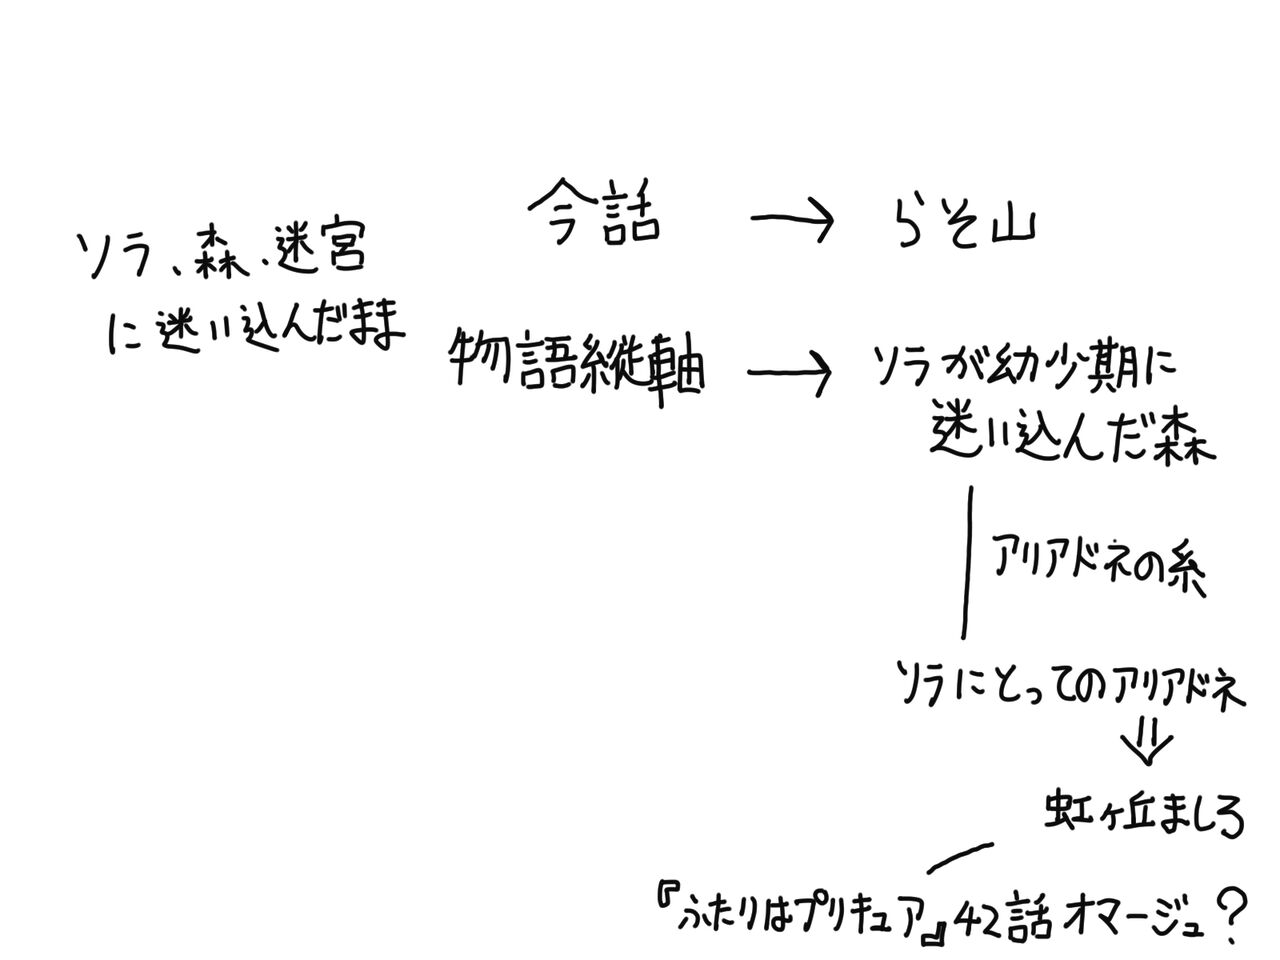 ソラ、森、迷宮
に迷い込んだまま
今話 → らそ山
物語縦軸 → ソラが幼少期に
迷い込んだ森
アリアドネの糸
ソラにとってのアリアドネ
⇓
虹ヶ丘ましろ
『ふたりはプリキュア』42話オマージュ?